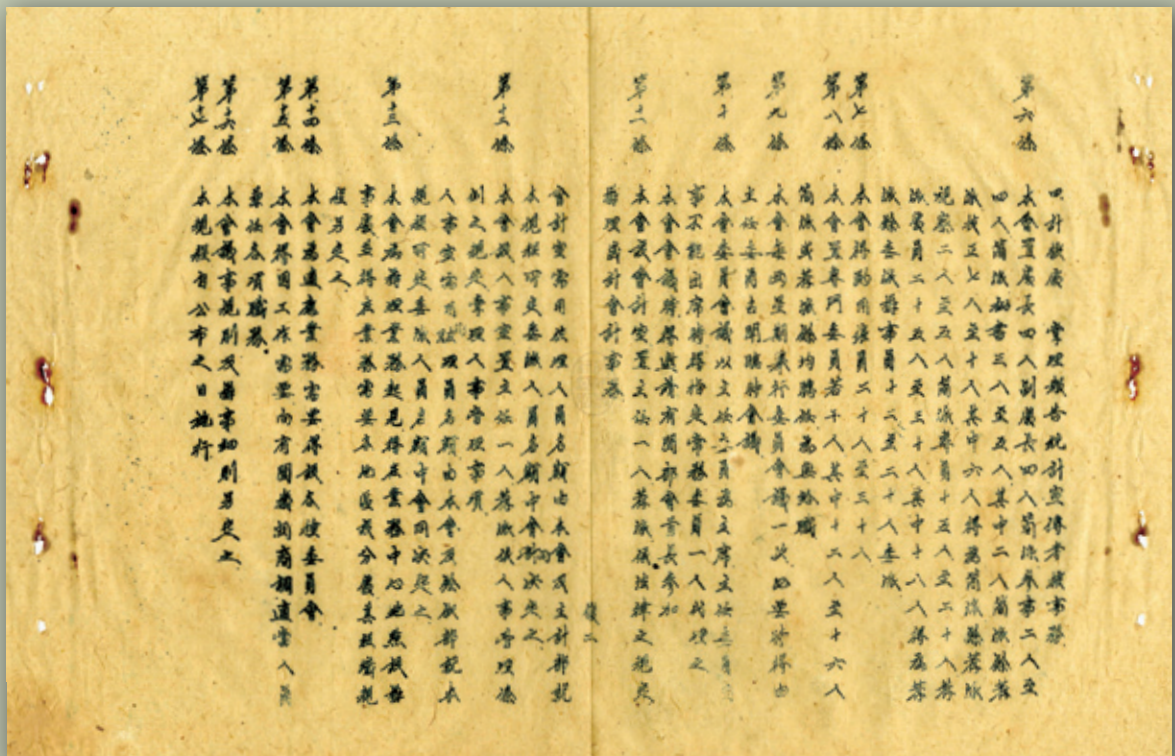 四計數處 掌理報告統計宣傳考核事務
第六條 本會置處長四人副處長四人簡派參事二人至
四人簡派秘書三人至五人其中二人簡派餘薦
派技正七人至十人其中六人得為簡派餘薦派
視察二人至五人簡派專員十五人至二十人薦
派處員二十五人至三十人其中十八人得為薦
派餘委派辦事員十二至二十人委派
第七條 本會得酌用雇員二十人至三十人
第八條 本會置專門委員若干人其中十二人至十六人
簡派或薦派餘均聘任為無給職
第九條 本會每兩星期舉行委員會議一次必要時得由
主任委員召開臨時會議
第十條 本會委員會議以主任委員為主席主任委員
事不能出席時得指定常務委員一人代理之
本會會議時得邀請有關部會首長參加
第十一條 本會設會計室置主任一人薦派依法律之規定
辦理歲計會計事務
會計室需用佐理人員名額由本會及主計部就
本規程所定委派人員名額中會同決定之
第十二條 本會設人事室置主任一人薦派依人事管理條
例之規定掌理人事管理事項
人事室需用助理人員名額由本會及銓敘部就本
規程所定委派人員名額中會同決定之
第十三條 本會為辦理業務起見得在業務中心地點設辦
事處並得在業務需要各地區設分處其組織規
程另定之
第十四條 本會為適應業務需要得設各種委員會
第十五條 本會得因工作需要向有關機關商調適當人員
兼任各項職務
第十六條 本會議事規則及辦事細則另定之
第十七條 本規程自公布之日施行